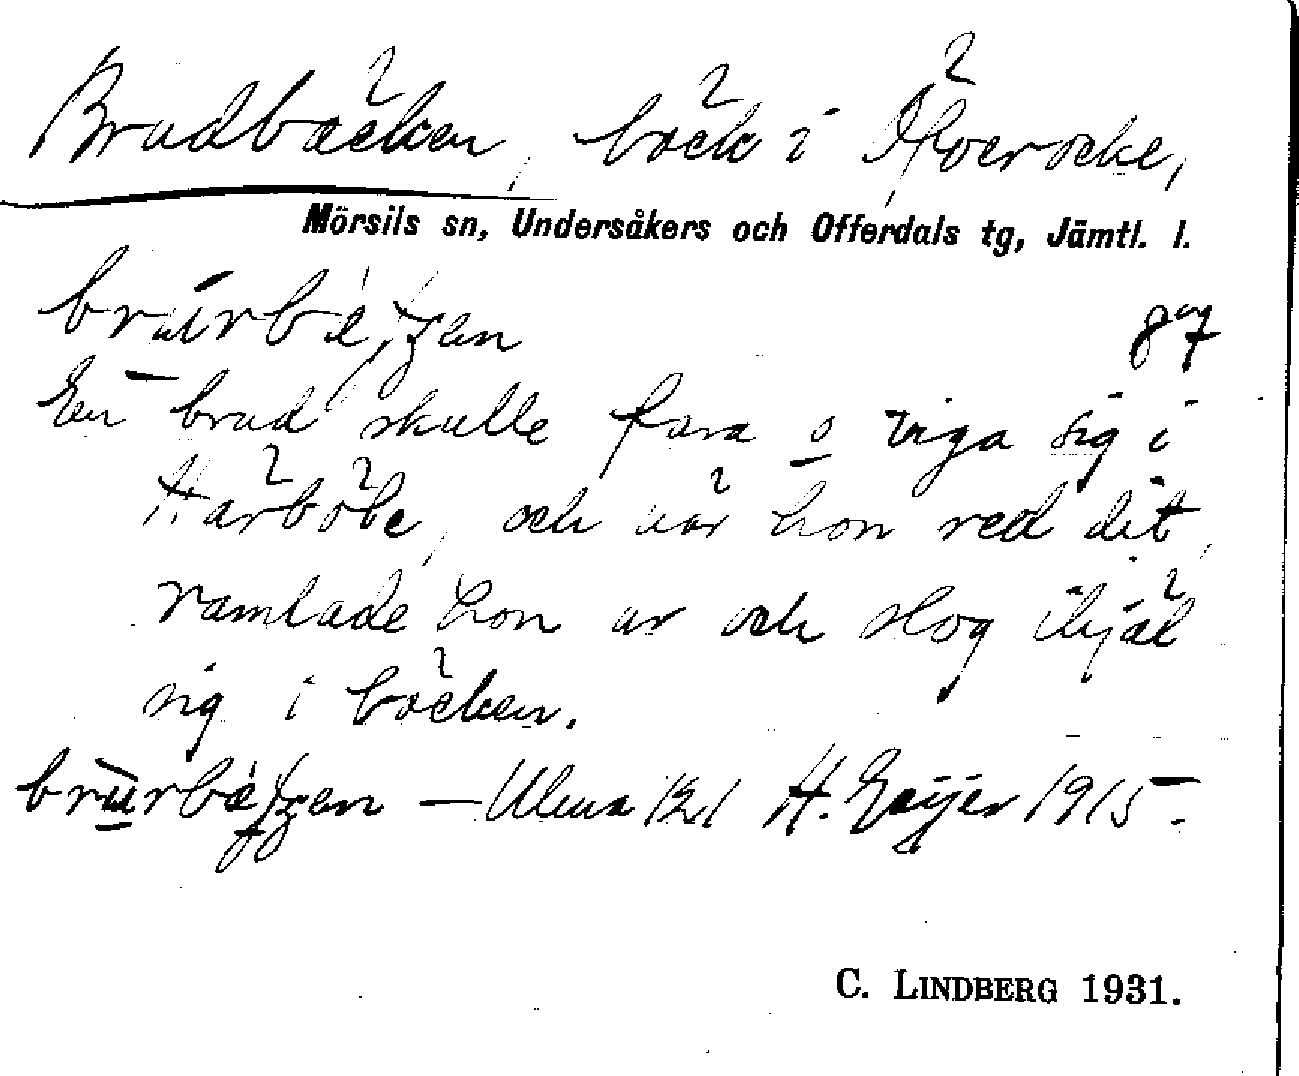 Brudbäcken, bäck i Överocke,
Mörsils sn, Undersåkers och Offerdals tg, Jämtl. l.
87
En brud skulle fara o viga sig i
Härböle, och när hon red dit,
ramlade hon av och slog ihjäl
sig i bäcken.
H. Geijer 1915.
C. LINDBERG 1931.